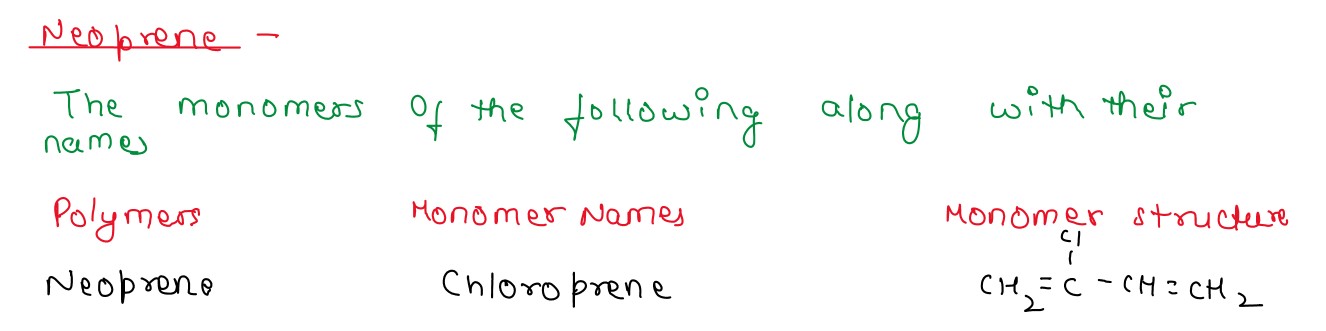 Neoprene -
The monomers of the following along with their
names
Polymers Monomer Names Monomer structure
Cl
Neoprene Chloroprene CH₂=C-CH=CH₂